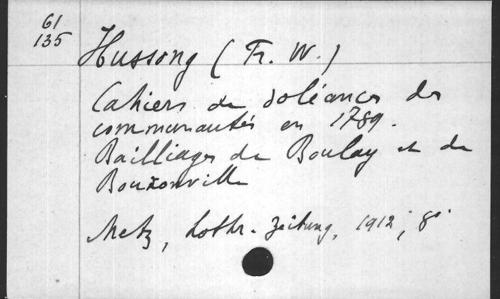 61
135
Hussong (Fr. W.)
Cahiers de doléances des
communautés en 1789.
Bailliages de Boulay et de
Bouzonville
Metz, Lothr. Zeitung, 1912, 8°